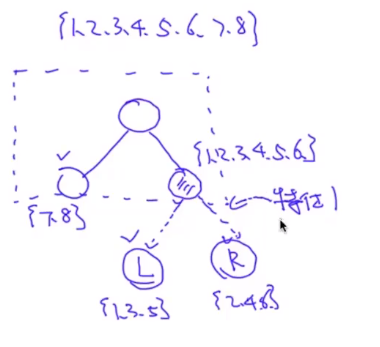 {1.2.3.4.5.6.7.8}
{1.2.3.4.5.6}
特征1
{7.8}
L
R
{1.3.5}
{2.4.6}